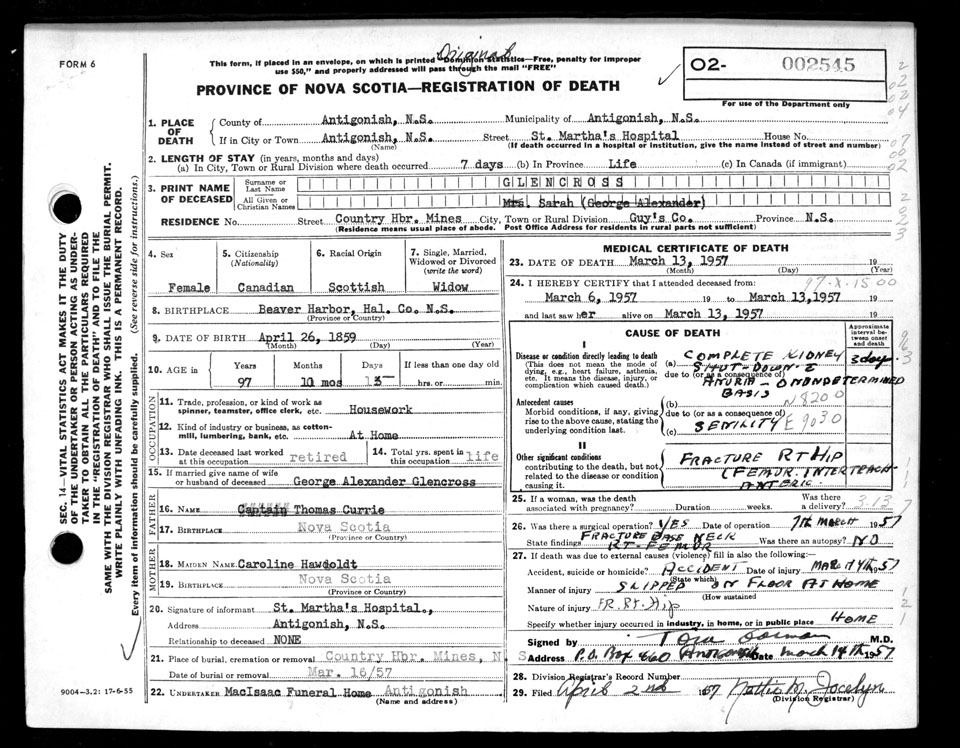 FORM 6
Original
This form, if placed in an envelope, on which is printed "Dominion Statistics—Free, penalty for improper
use $50," and properly addressed will pass through the mail "FREE"
O2- 002545
For use of the Department only
PROVINCE OF NOVA SCOTIA—REGISTRATION OF DEATH
1. PLACE OF DEATH
County of Antigonish, N.S. Municipality of Antigonish, N.S.
If in City or Town Antigonish, N.S. Street St. Martha's Hospital House No.
(Name) (If death occurred in a hospital or institution, give the name instead of street and number)
2. LENGTH OF STAY (in years, months and days)
(a) In City, Town or Rural Division where death occurred 7 days (b) In Province Life (c) In Canada (if immigrant)
3. PRINT NAME OF DECEASED
Surname or Last Name GLENCROSS
All Given or Christian Names Mrs. Sarah (George Alexander)
RESIDENCE No. Street Country Hbr. Mines City, Town or Rural Division Guy's Co. Province N.S.
(Residence means usual place of abode. Post Office Address for residents in rural parts not sufficient)
4. Sex Female
5. Citizenship (Nationality) Canadian
6. Racial Origin Scottish
7. Single, Married, Widowed or Divorced (write the word) Widow
8. BIRTHPLACE Beaver Harbor, Hal. Co. N.S.
(Province or Country)
9. DATE OF BIRTH April 26, 1859
(Month) (Day) (Year)
10. AGE in Years 97 Months 10 mos Days 15 If less than one day old hrs. or min.
OCCUPATION
11. Trade, profession, or kind of work as
spinner, teamster, office clerk, etc. Housework
12. Kind of industry or business, as cotton-
mill, lumbering, bank, etc. At Home
13. Date deceased last worked at this occupation retired
14. Total yrs. spent in this occupation life
15. If married give name of wife
or husband of deceased George Alexander Glencross
FATHER
16. NAME Captain Thomas Currie
17. BIRTHPLACE Nova Scotia
(Province or Country)
MOTHER
18. MAIDEN NAME Caroline Hawboldt
19. BIRTHPLACE Nova Scotia
(Province or Country)
20. Signature of informant St. Martha's Hospital.,
Address Antigonish, N.S.
Relationship to deceased NONE
21. Place of burial, cremation or removal Country Hbr. Mines, N S
Date of burial or removal Mar. 16/57
22. UNDERTAKER MacIsaac Funeral Home Antigonish
(Name and address)
MEDICAL CERTIFICATE OF DEATH
23. DATE OF DEATH March 13, 1957 19
(Month) (Day) (Year)
24. I HEREBY CERTIFY that I attended deceased from: 97-X-1500
March 6, 1957 19 to March 13,1957 19
and last saw her alive on March 13, 1957 19
CAUSE OF DEATH
Approximate interval between onset and death
I
Disease or condition directly leading to death
(This does not mean the mode of
dying, e.g., heart failure, asthenia,
etc. It means the disease, injury, or
complication which caused death.)
(a) COMPLETE KIDNEY 3 days
SHUT-DOWN-E
due to (or as a consequence of)
ANURIA - UNDETERMINED
BASIS
Antecedent causes
Morbid conditions, if any, giving
rise to the above cause, stating the
underlying condition last.
(b) N8200
due to (or as a consequence of)
(c) SENILITY E9030
II
Other significant conditions
contributing to the death, but not
related to the disease or condition
causing it.
FRACTURE RT HIP
(FEMUR. INTERTROCH-
ANTERIC.
25. If a woman, was the death
associated with pregnancy? Duration weeks. Was there a delivery? 313
26. Was there a surgical operation? YES Date of operation 7th MARCH 1957
State findings FRACTURE BASE NECK RT-FEMUR Was there an autopsy? NO
27. If death was due to external causes (violence) fill in also the following:—
Accident, suicide or homicide? ACCIDENT Date of injury MARCH 4th 1957
(State which)
Manner of injury SLIPPED ON FLOOR AT HOME
(How sustained)
Nature of injury FR. Rt. Hip
Specify whether injury occurred in industry, in home, or in public place HOME
Signed by Gorman M.D.
Address P.O. Box 660 Antigonish Date March 14th 1957
28. Division Registrar's Record Number
29. Filed April 2nd 1957 Nettie M. Jocelyn
(Division Registrar)
SEC. 14—VITAL STATISTICS ACT MAKES IT THE DUTY
OF THE UNDERTAKER OR PERSON ACTING AS UNDER-
TAKER TO OBTAIN ALL THE PARTICULARS REQUIRED
IN THE "REGISTRATION OF DEATH" AND TO FILE THE
SAME WITH THE DIVISION REGISTRAR WHO SHALL ISSUE THE BURIAL PERMIT.
WRITE PLAINLY WITH UNFADING INK. THIS IS A PERMANENT RECORD.
Every item of information should be carefully supplied. (See reverse side for instructions.)
9004—3.2: 17-6-55